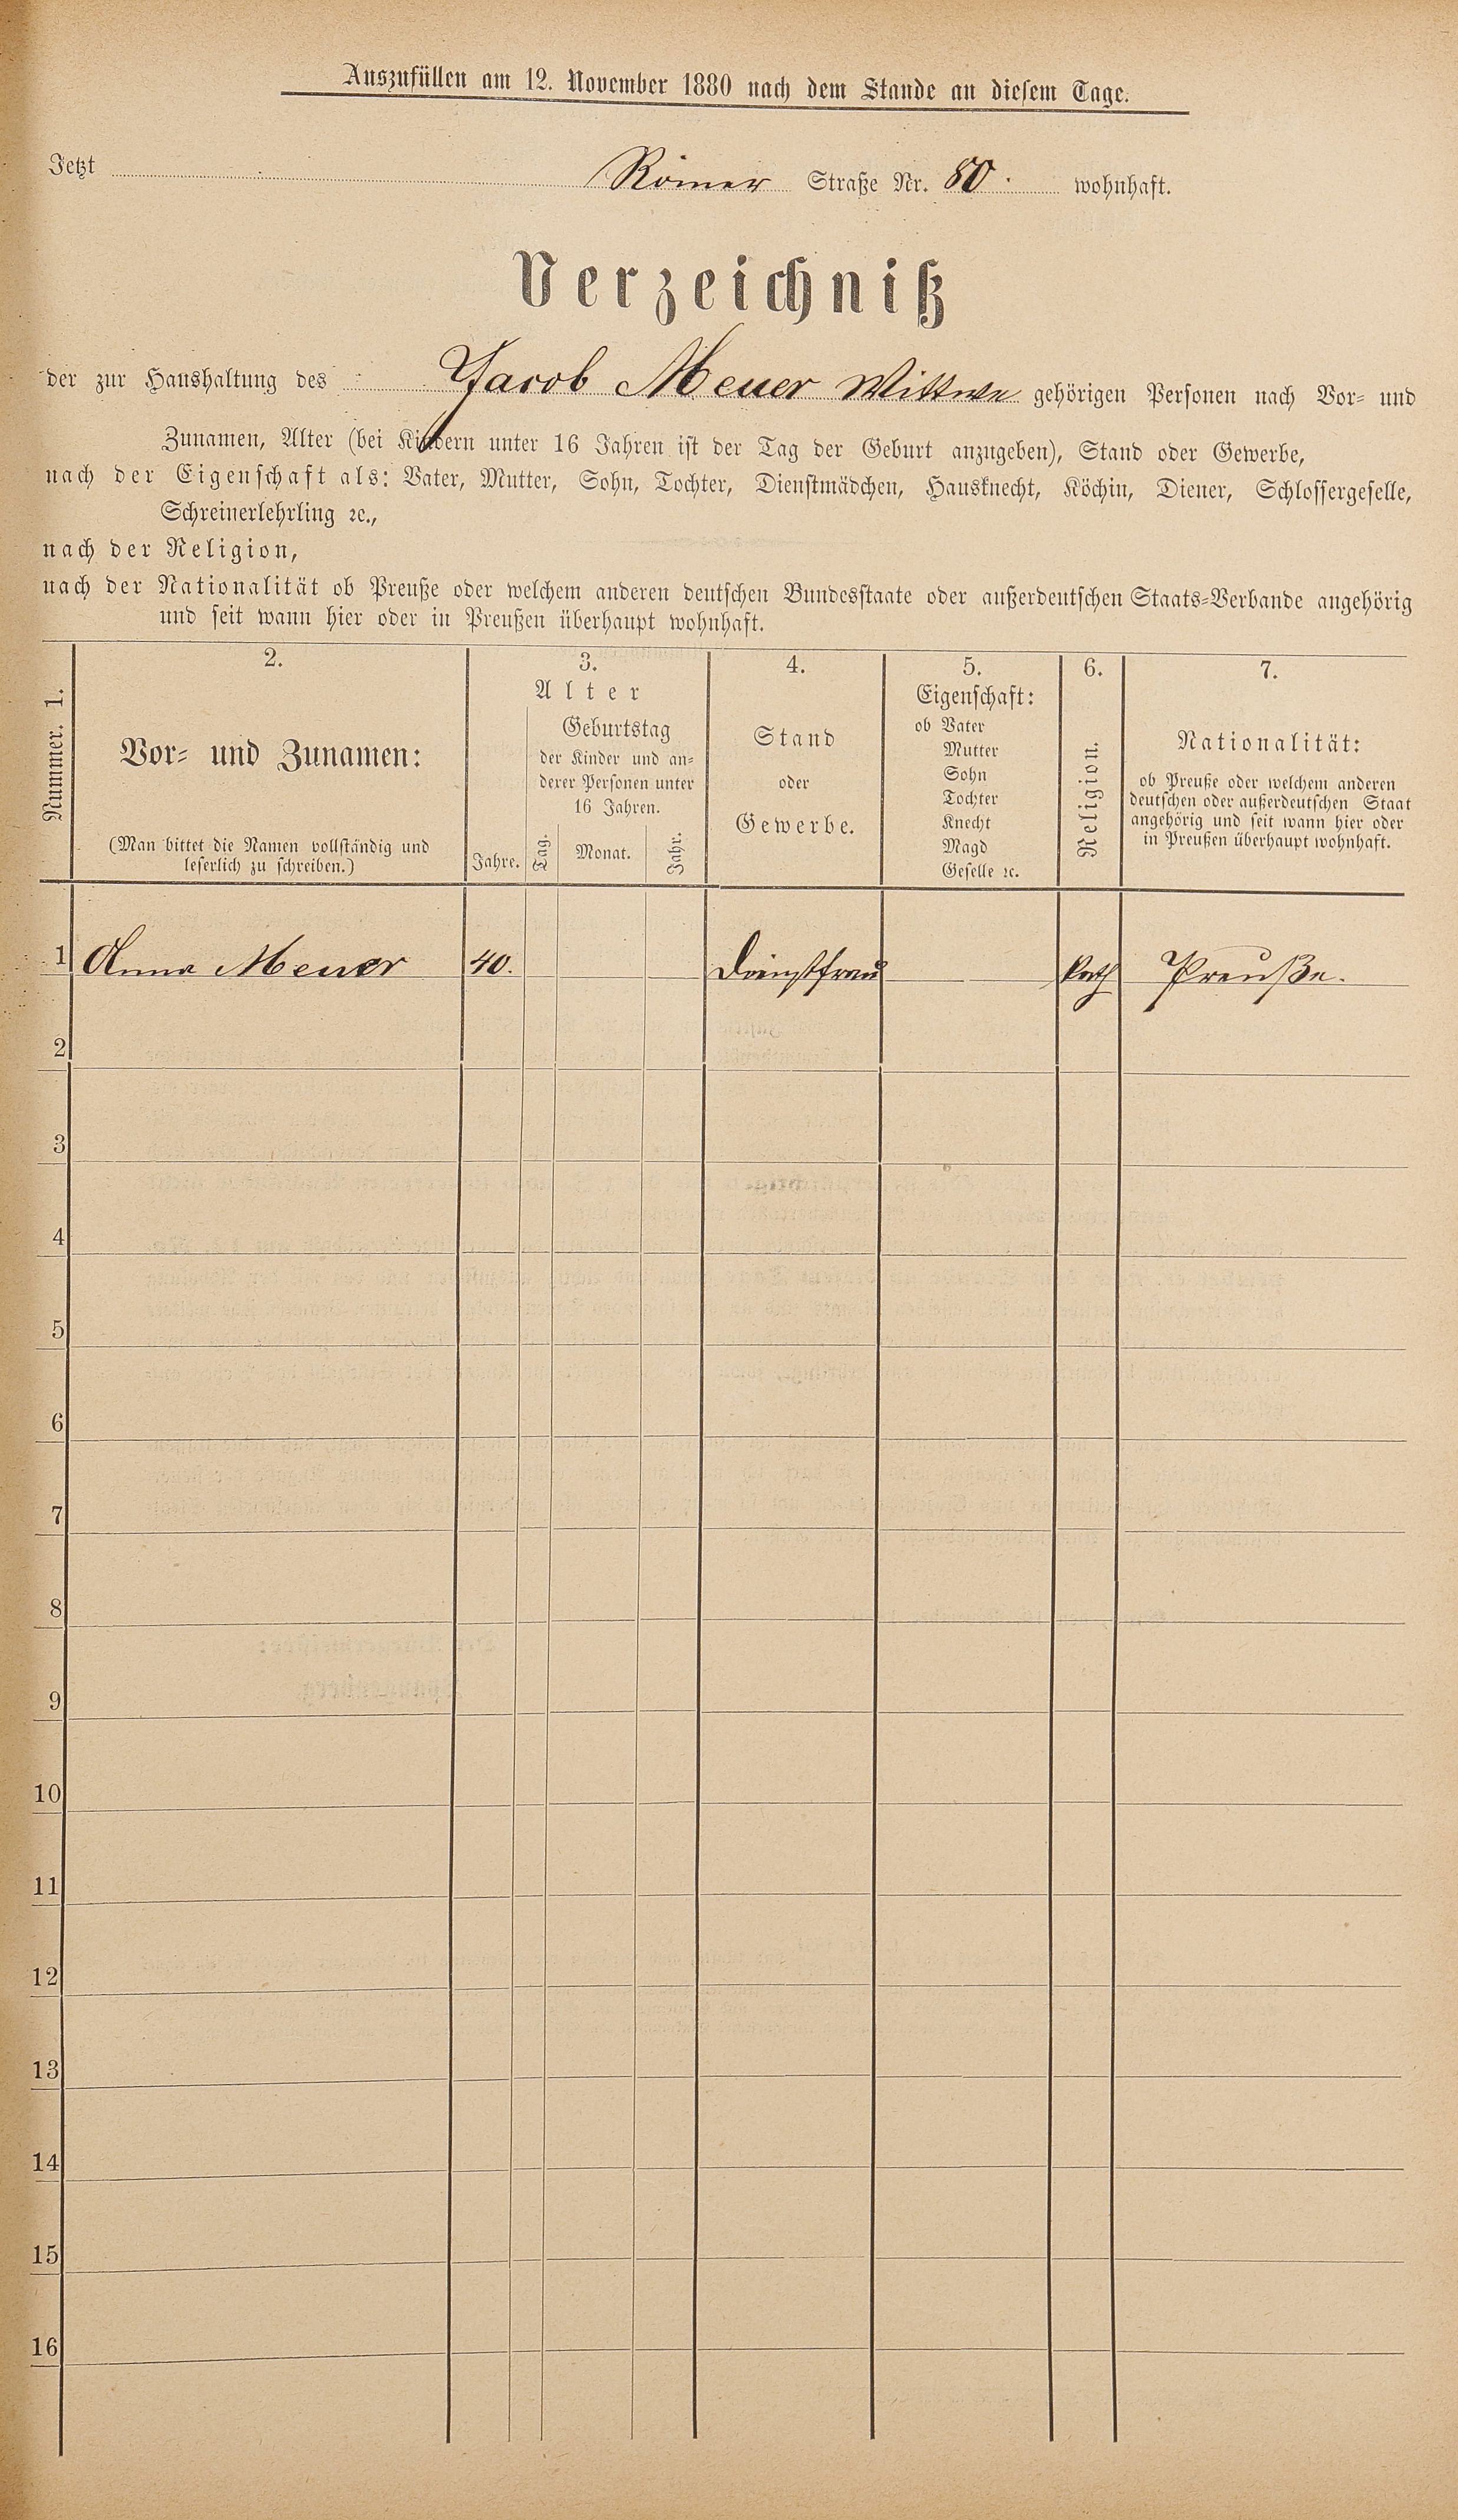 Auszufüllen am 12. November 1880 nach dem Stande an diesem Tage.
Jetzt Römer Straße Nr. 80. wohnhaft.
Verzeichniß
der zur Haushaltung des Jacob Meuer Wittwe gehörigen Personen nach Vor- und
Zunamen, Alter (bei Kindern unter 16 Jahren ist der Tag der Geburt anzugeben), Stand oder Gewerbe,
nach der Eigenschaft als: Vater, Mutter, Sohn, Tochter, Dienstmädchen, Hausknecht, Köchin, Diener, Schlossergeselle,
Schreinerlehrling ꝛc.,
nach der Religion,
nach der Nationalität ob Preuße oder welchem anderen deutschen Bundesstaate oder außerdeutschen Staats-Verbande angehörig
und seit wann hier oder in Preußen überhaupt wohnhaft.
Nummer. 1.
2.
Vor- und Zunamen:
(Man bittet die Namen vollständig und
leserlich zu schreiben.)
3.
Alter
Jahre.
Geburtstag
der Kinder und an-
derer Personen unter
16 Jahren.
Tag.
Monat.
Jahr.
4.
Stand
oder
Gewerbe.
5.
Eigenschaft:
ob Vater
Mutter
Sohn
Tochter
Knecht
Magd
Geselle ꝛc.
6.
Religion.
7.
Nationalität:
ob Preuße oder welchem anderen
deutschen oder außerdeutschen Staat
angehörig und seit wann hier oder
in Preußen überhaupt wohnhaft.
1 Anna Meuer 40. Dienstfrau Kath Preuße.
2
3
4
5
6
7
8
9
10
11
12
13
14
15
16